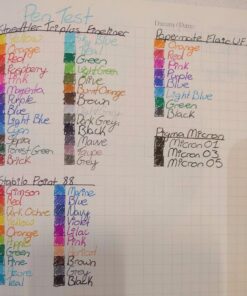 Pen Test
Staedtler Triplus Fineliner
Yellow
Orange
Red
Raspberry
Pink
Magenta
Purple
Blue
Light Blue
Cyan
Sepia
Forest Green
Brick
Green
Light Green
Olive
Burnt Orange
Brown
Dark Grey
Black
Mauve
Grey
Papermate Flair UF
Orange
Red
Pink
Purple
Blue
Light Blue
Green
Black
Pigma Micron
Micron 01
Micron 03
Micron 05
Stabilo Point 88
Crimson
Red
Dark Ochre
Yellow
Orange
Green
Pine
Azure
Teal
Marine
Blue
Navy
Violet
Lilac
Pink
Apricot
Brown
Grey
Black